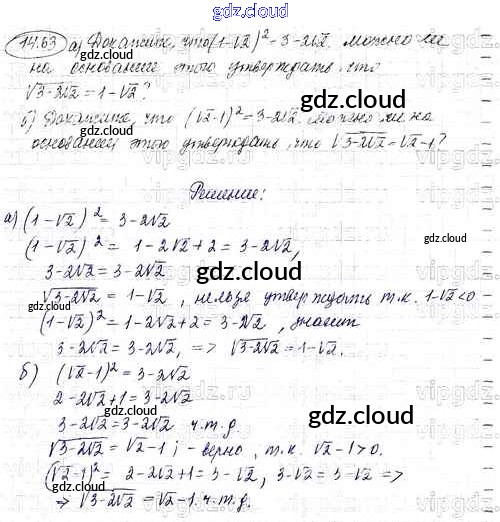 gdz.cloud
14.63 а) Докажите, что (1-√2)² = 3-2√2. Можно ли
на основании этого утверждать, что
√3-2√2 = 1-√2?
gdz.cloud
б) Докажите, что (√2-1)² = 3-2√2. Можно ли на
основании этого утверждать, что √3-2√2 = √2-1?
gdz.cloud
Решение:
а) (1-√2)² = 3-2√2
(1-√2)² = 1-2√2+2 = 3-2√2,
3-2√2 = 3-2√2
gdz.cloud
√3-2√2 = 1-√2, нельзя утверждать т.к. 1-√2<0
(1-√2)² = 1-2√2+2 = 3-2√2, значит
3-2√2 = 3-2√2, => √3-2√2 = 1-√2.
б) (√2-1)² = 3-2√2
2-2√2+1 = 3-2√2
gdz.cloud
3-2√2 = 3-2√2 ч.т.д.
√3-2√2 = √2-1; - верно, т.к. √2-1>0.
(√2-1)² = 2-2√2+1 = 3-√2, 3-√2 = 3-√2 =>
=> √3-2√2 = √2-1. ч.т.д.
gdz.cloud